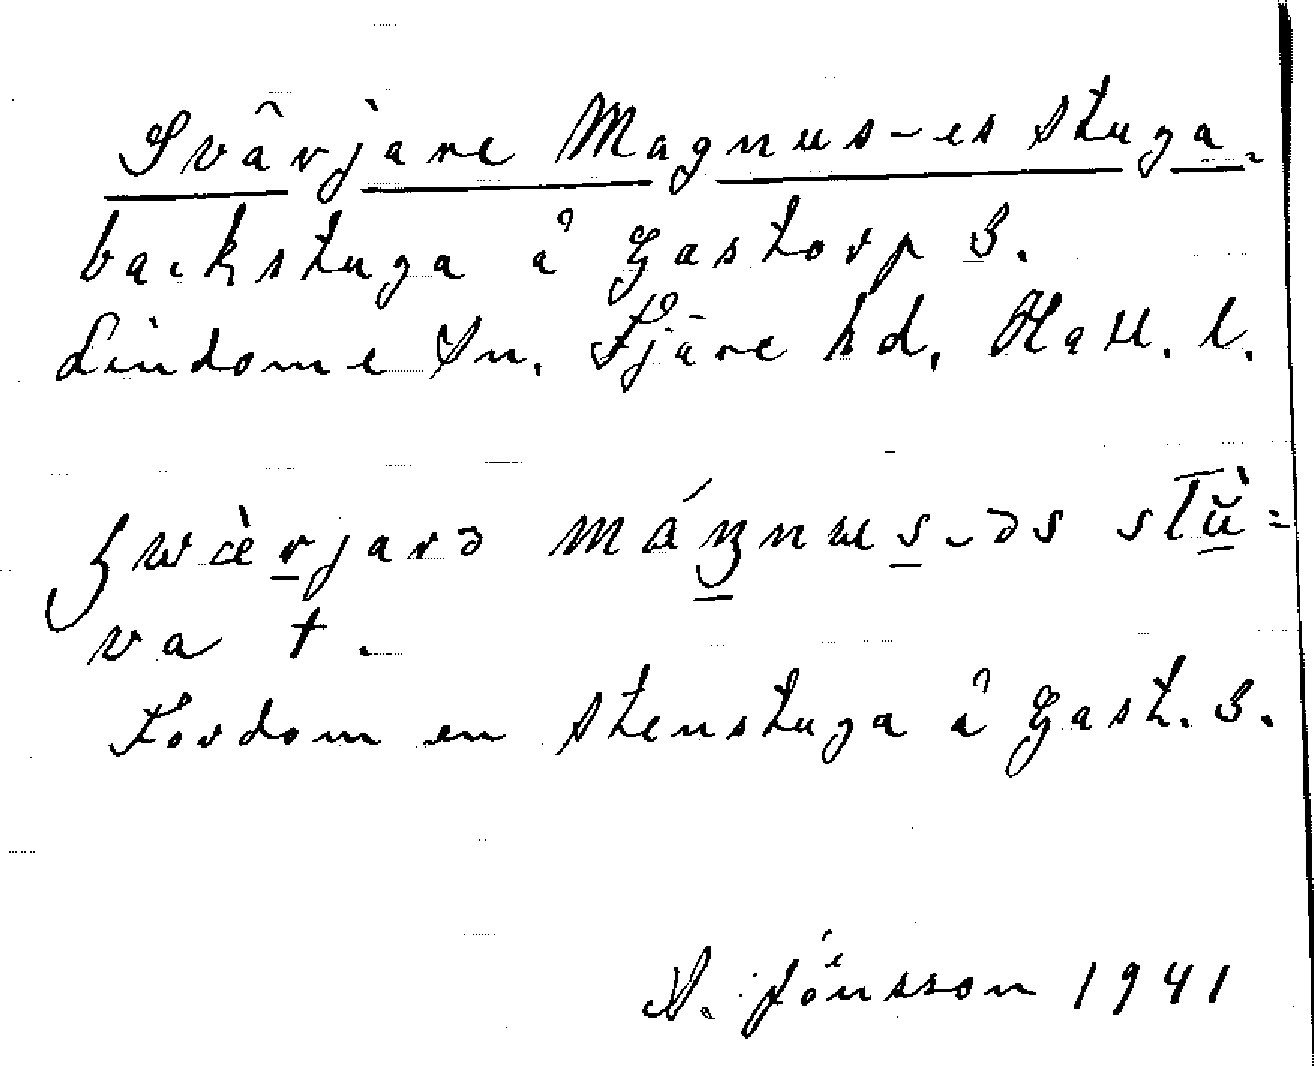 Svärjare Magnus-es stuga.
backstuga å Gastorp 3.
Lindome Sn. Fjäre hd, Hall. l.
ʒwæ̀rjarə mágnus-əs stŭ̀=
va †.
Fordom en stenstuga å Gast. 3.
A. Jönsson 1941